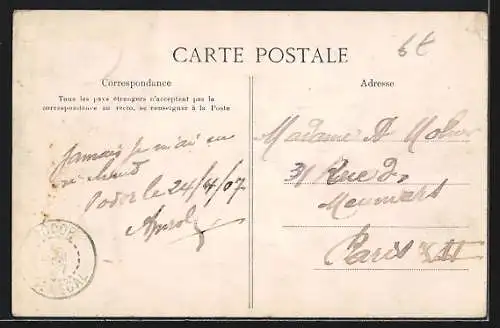 6€
CARTE POSTALE
Correspondance
Tous les pays étrangers n'acceptent pas la
correspondance au recto, se renseigner à la Poste
Jamais je n'ai eu
chaud
Podor le 24/4/07
Adresse
Madame A
31 Rue de
Meuniers
Paris XII
PODOR
SENEGAL